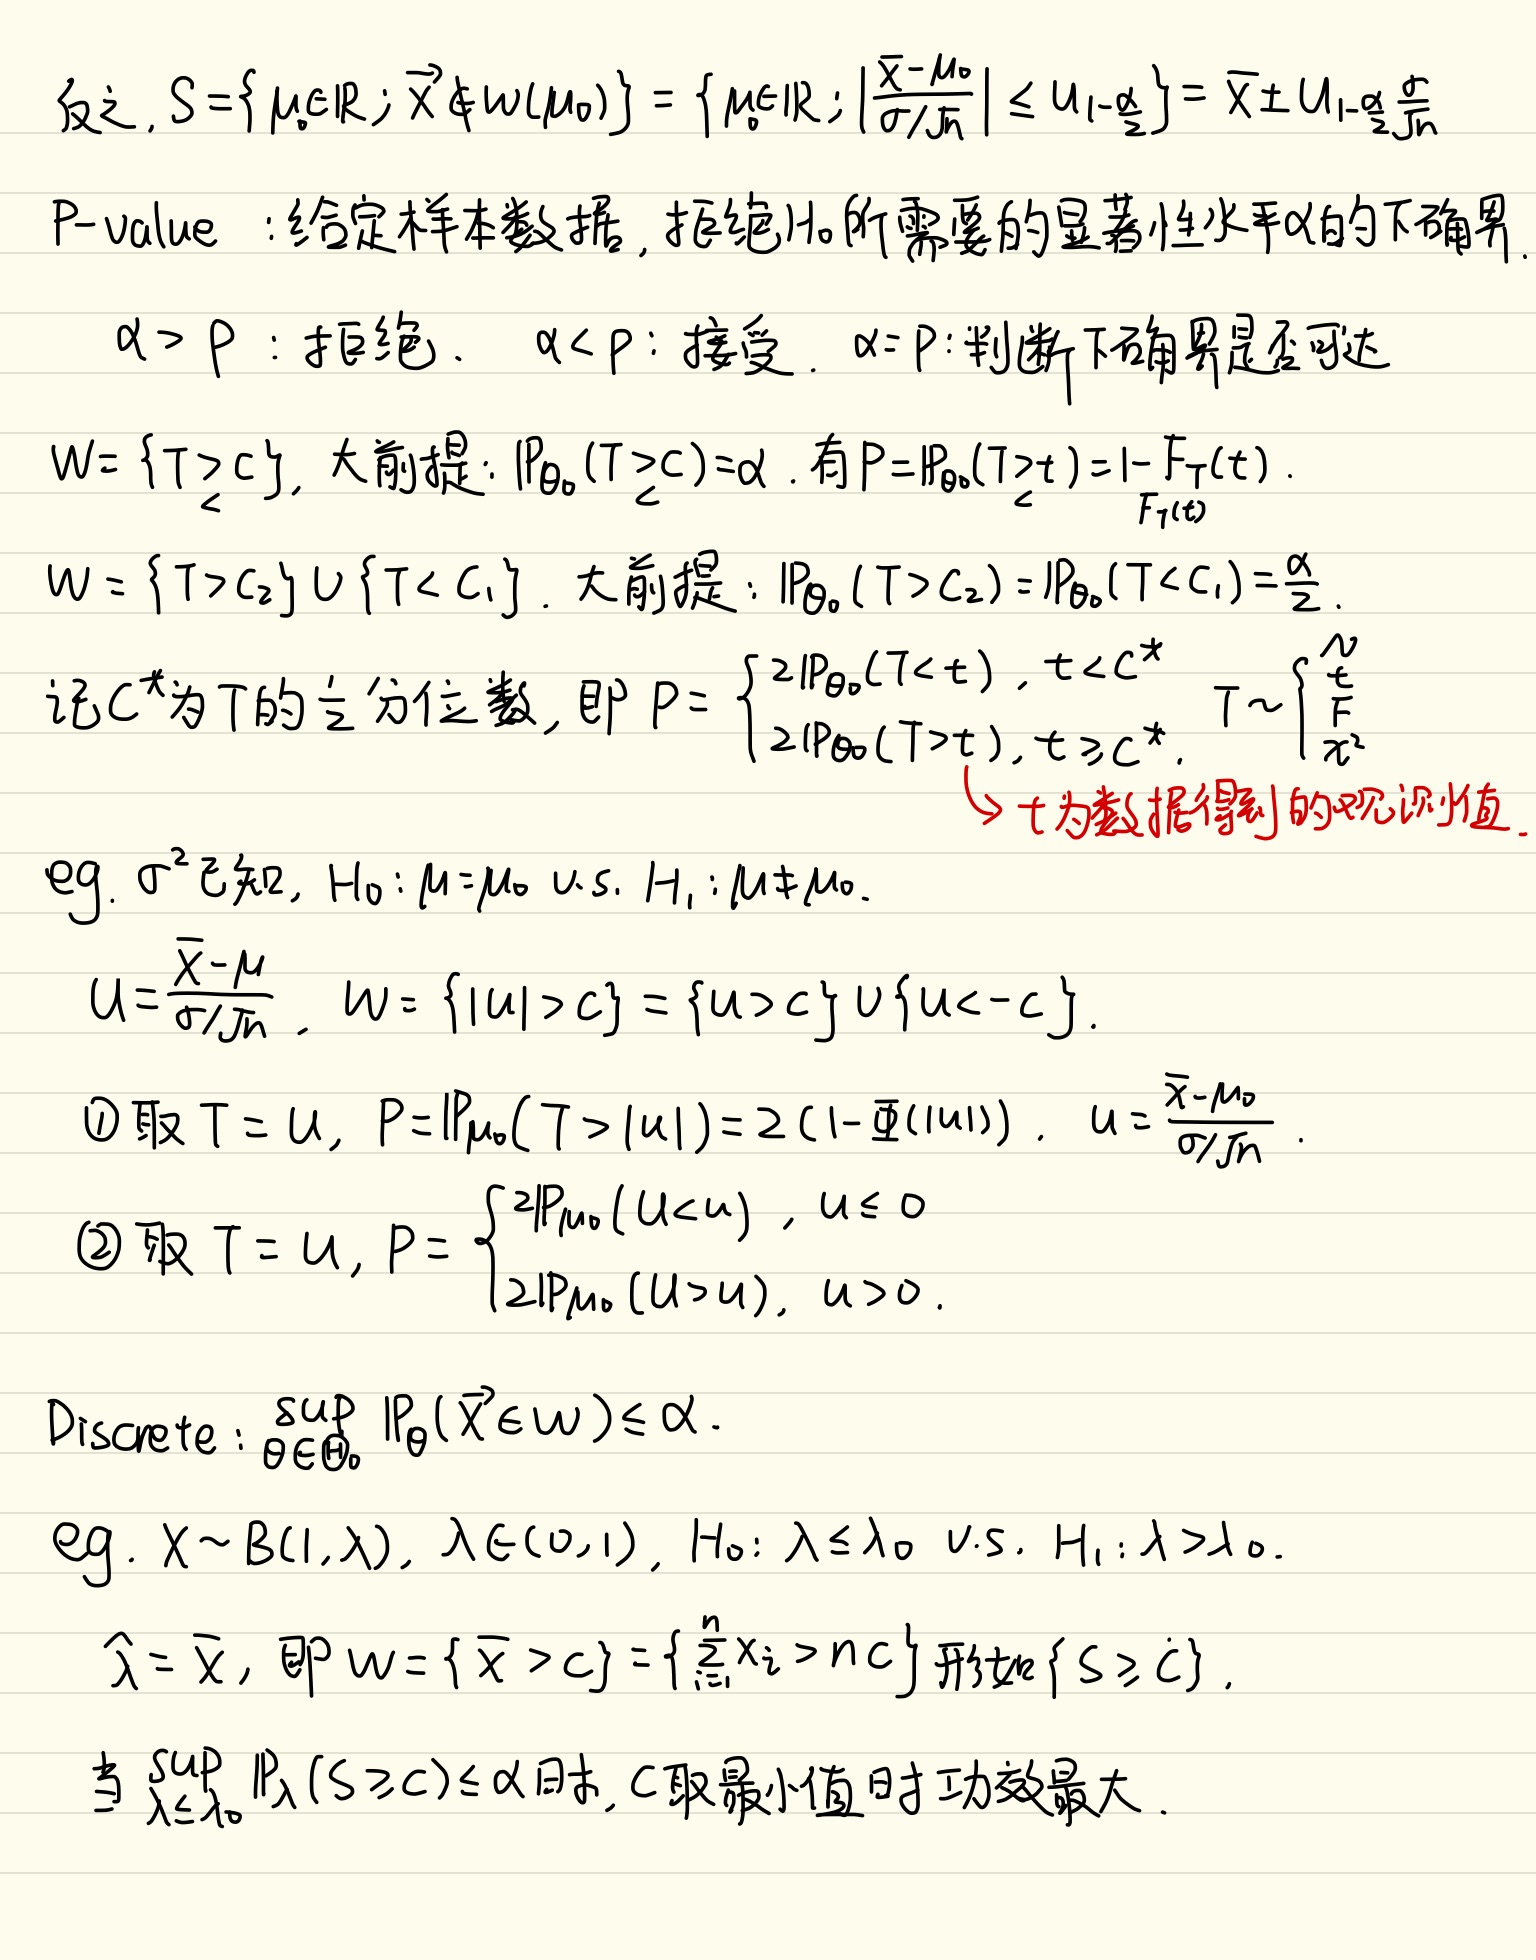 反之, S={μ₀∈ℝ; X⃗∉W(μ₀)} = {μ₀∈ℝ; |(x̄-μ₀)/(σ/√n)| ≤ u_{1-α/2}} = x̄ ± u_{1-α/2} σ/√n
P-value : 给定样本数据, 拒绝H₀所需要的显著性水平α的下确界.
α > P : 拒绝. α < P : 接受. α = P : 判断下确界是否可达
W = {T ≥ c}, 大前提: ℙ_{θ₀}(T ≥ c) = α. 有 P = ℙ_{θ₀}(T ≥ t) = 1 - F_T(t).
≤ ≤ ≤ F_T(t)
W = {T > C₂} ∪ {T < C₁}. 大前提: ℙ_{θ₀}(T > C₂) = ℙ_{θ₀}(T < C₁) = α/2.
记C*为T的½分位数, 即 P = { 2ℙ_{θ₀}(T < t), t < C*
2ℙ_{θ₀}(T > t), t ≥ C*. T ~ { N t F x²
↳ t为数据得到的观测值.
eg. σ²已知, H₀: μ = μ₀ v.s. H₁: μ ≠ μ₀.
U = (x̄-μ)/(σ/√n). W = {|u| > c} = {u > c} ∪ {u < -c}.
① 取 T = U, P = ℙ_{μ₀}(T > |u|) = 2(1 - Φ(|u|)). u = (x̄-μ₀)/(σ/√n).
② 取 T = U, P = { 2ℙ_{μ₀}(U < u), u ≤ 0
2ℙ_{μ₀}(U > u), u > 0.
Discrete: sup_{θ∈Θ₀} ℙ_θ(X⃗ ∈ W) ≤ α.
eg. X ~ B(1, λ), λ ∈ (0, 1), H₀: λ ≤ λ₀ v.s. H₁: λ > λ₀.
λ̂ = x̄, 即 W = {x̄ > c} = {∑_{i=1}^n x_i > nc} 形如 {S ≥ c}.
当 sup_{λ≤λ₀} ℙ_λ(S ≥ c) ≤ α 时, C取最小值时功效最大.